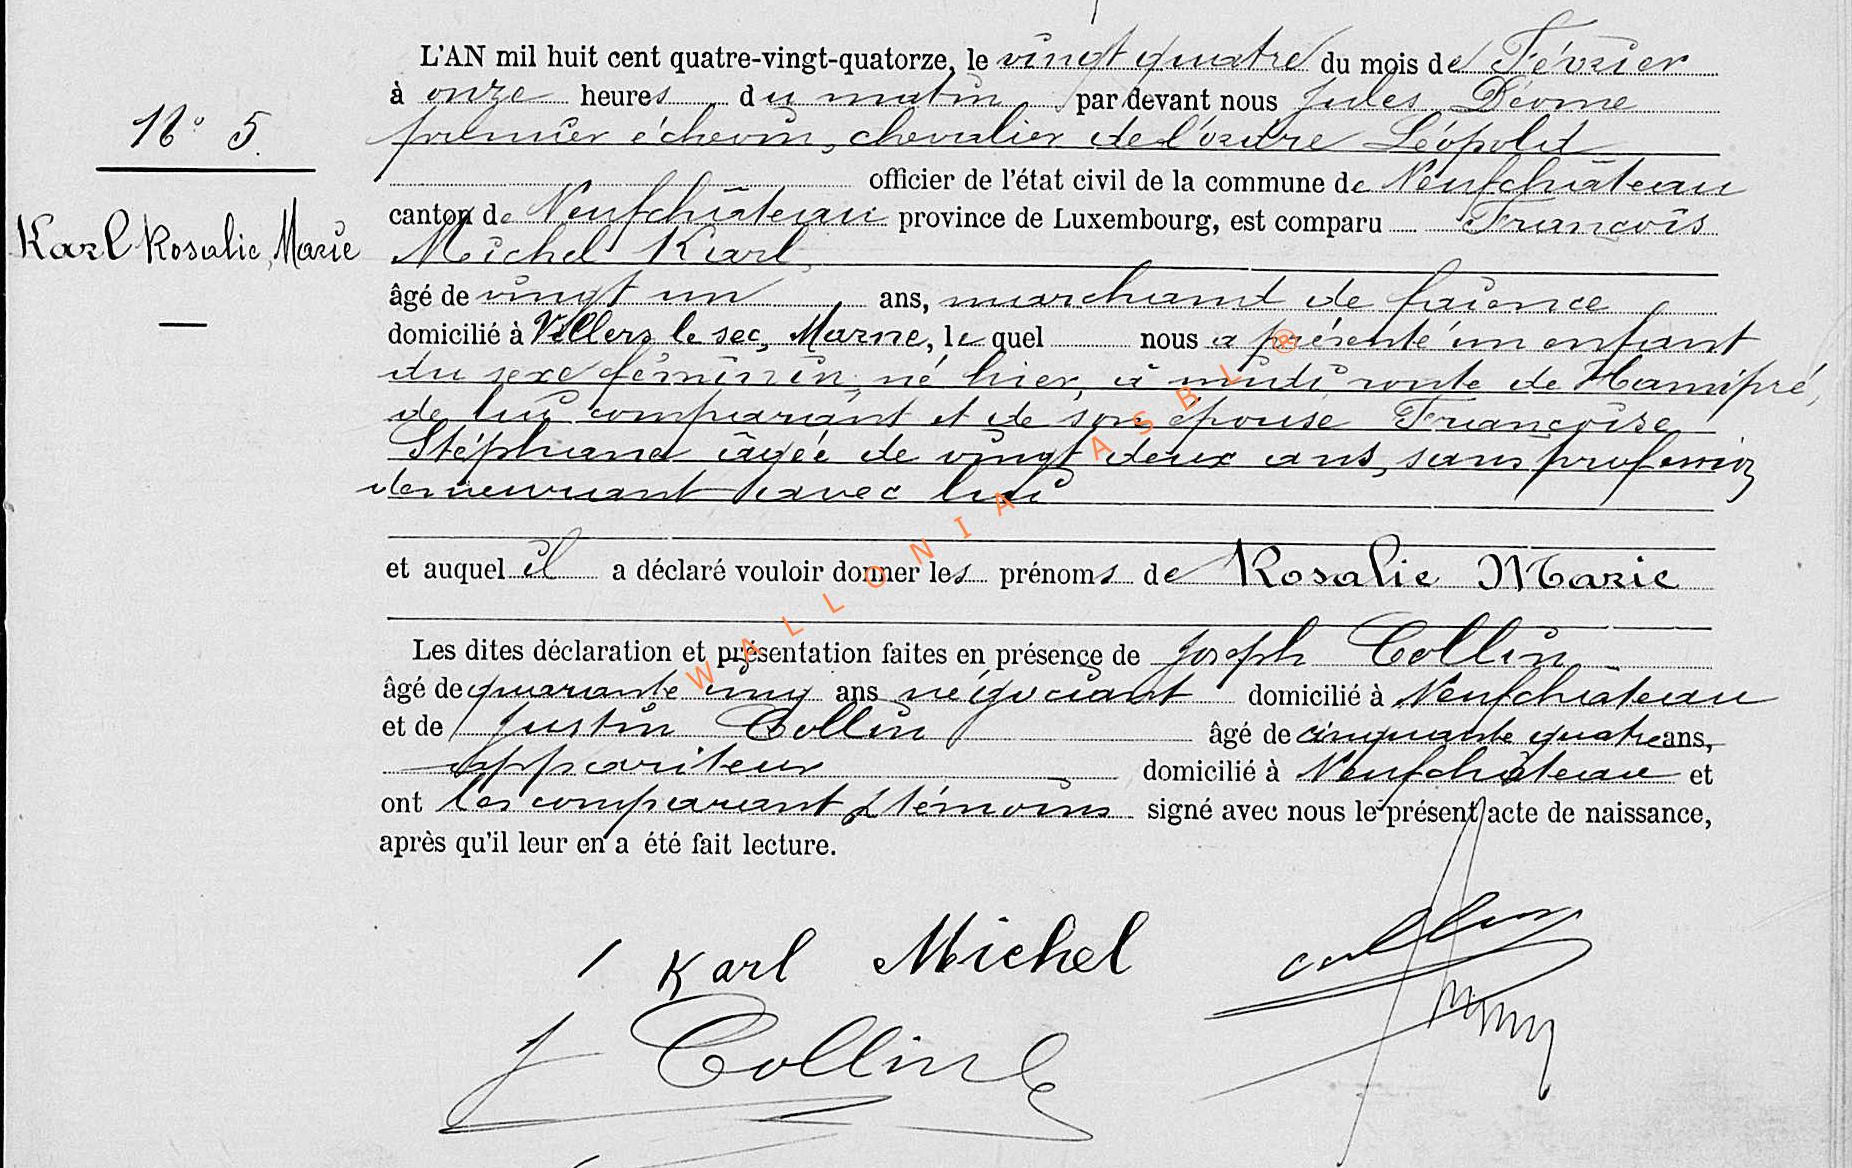 L'AN mil huit cent quatre-vingt-quatorze, le vingt quatre du mois de Février
à onze heures du matin par devant nous Jules
premier échevin, chevalier de l'ordre Léopold
officier de l'état civil de la commune de Neufchâteau
N° 5.
canton de Neufchâteau province de Luxembourg, est comparu François
Karl Rosalie, Marie
Michel Karl,
âgé de vingt un ans, marchand de faïence
domicilié à Villers le sec, Marne, le quel nous a présenté un enfant
du sexe féminin, né hier, à midi route de Hamipré,
de lui comparant et de son épouse Françoise
Stéphane âgée de vingt deux ans, sans profession
demeurant avec lui
et auquel il a déclaré vouloir donner les prénoms de Rosalie Marie
Les dites déclaration et présentation faites en présence de Joseph Collin
âgé de quarante cinq ans négociant domicilié à Neufchâteau
et de Justin Collin âgé de cinquante quatre ans,
appariteur domicilié à Neufchâteau et
ont les comparant & témoins signé avec nous le présent acte de naissance,
après qu'il leur en a été fait lecture.
Karl Michel
Collin
J Collin
WALLONIA ASBL ®